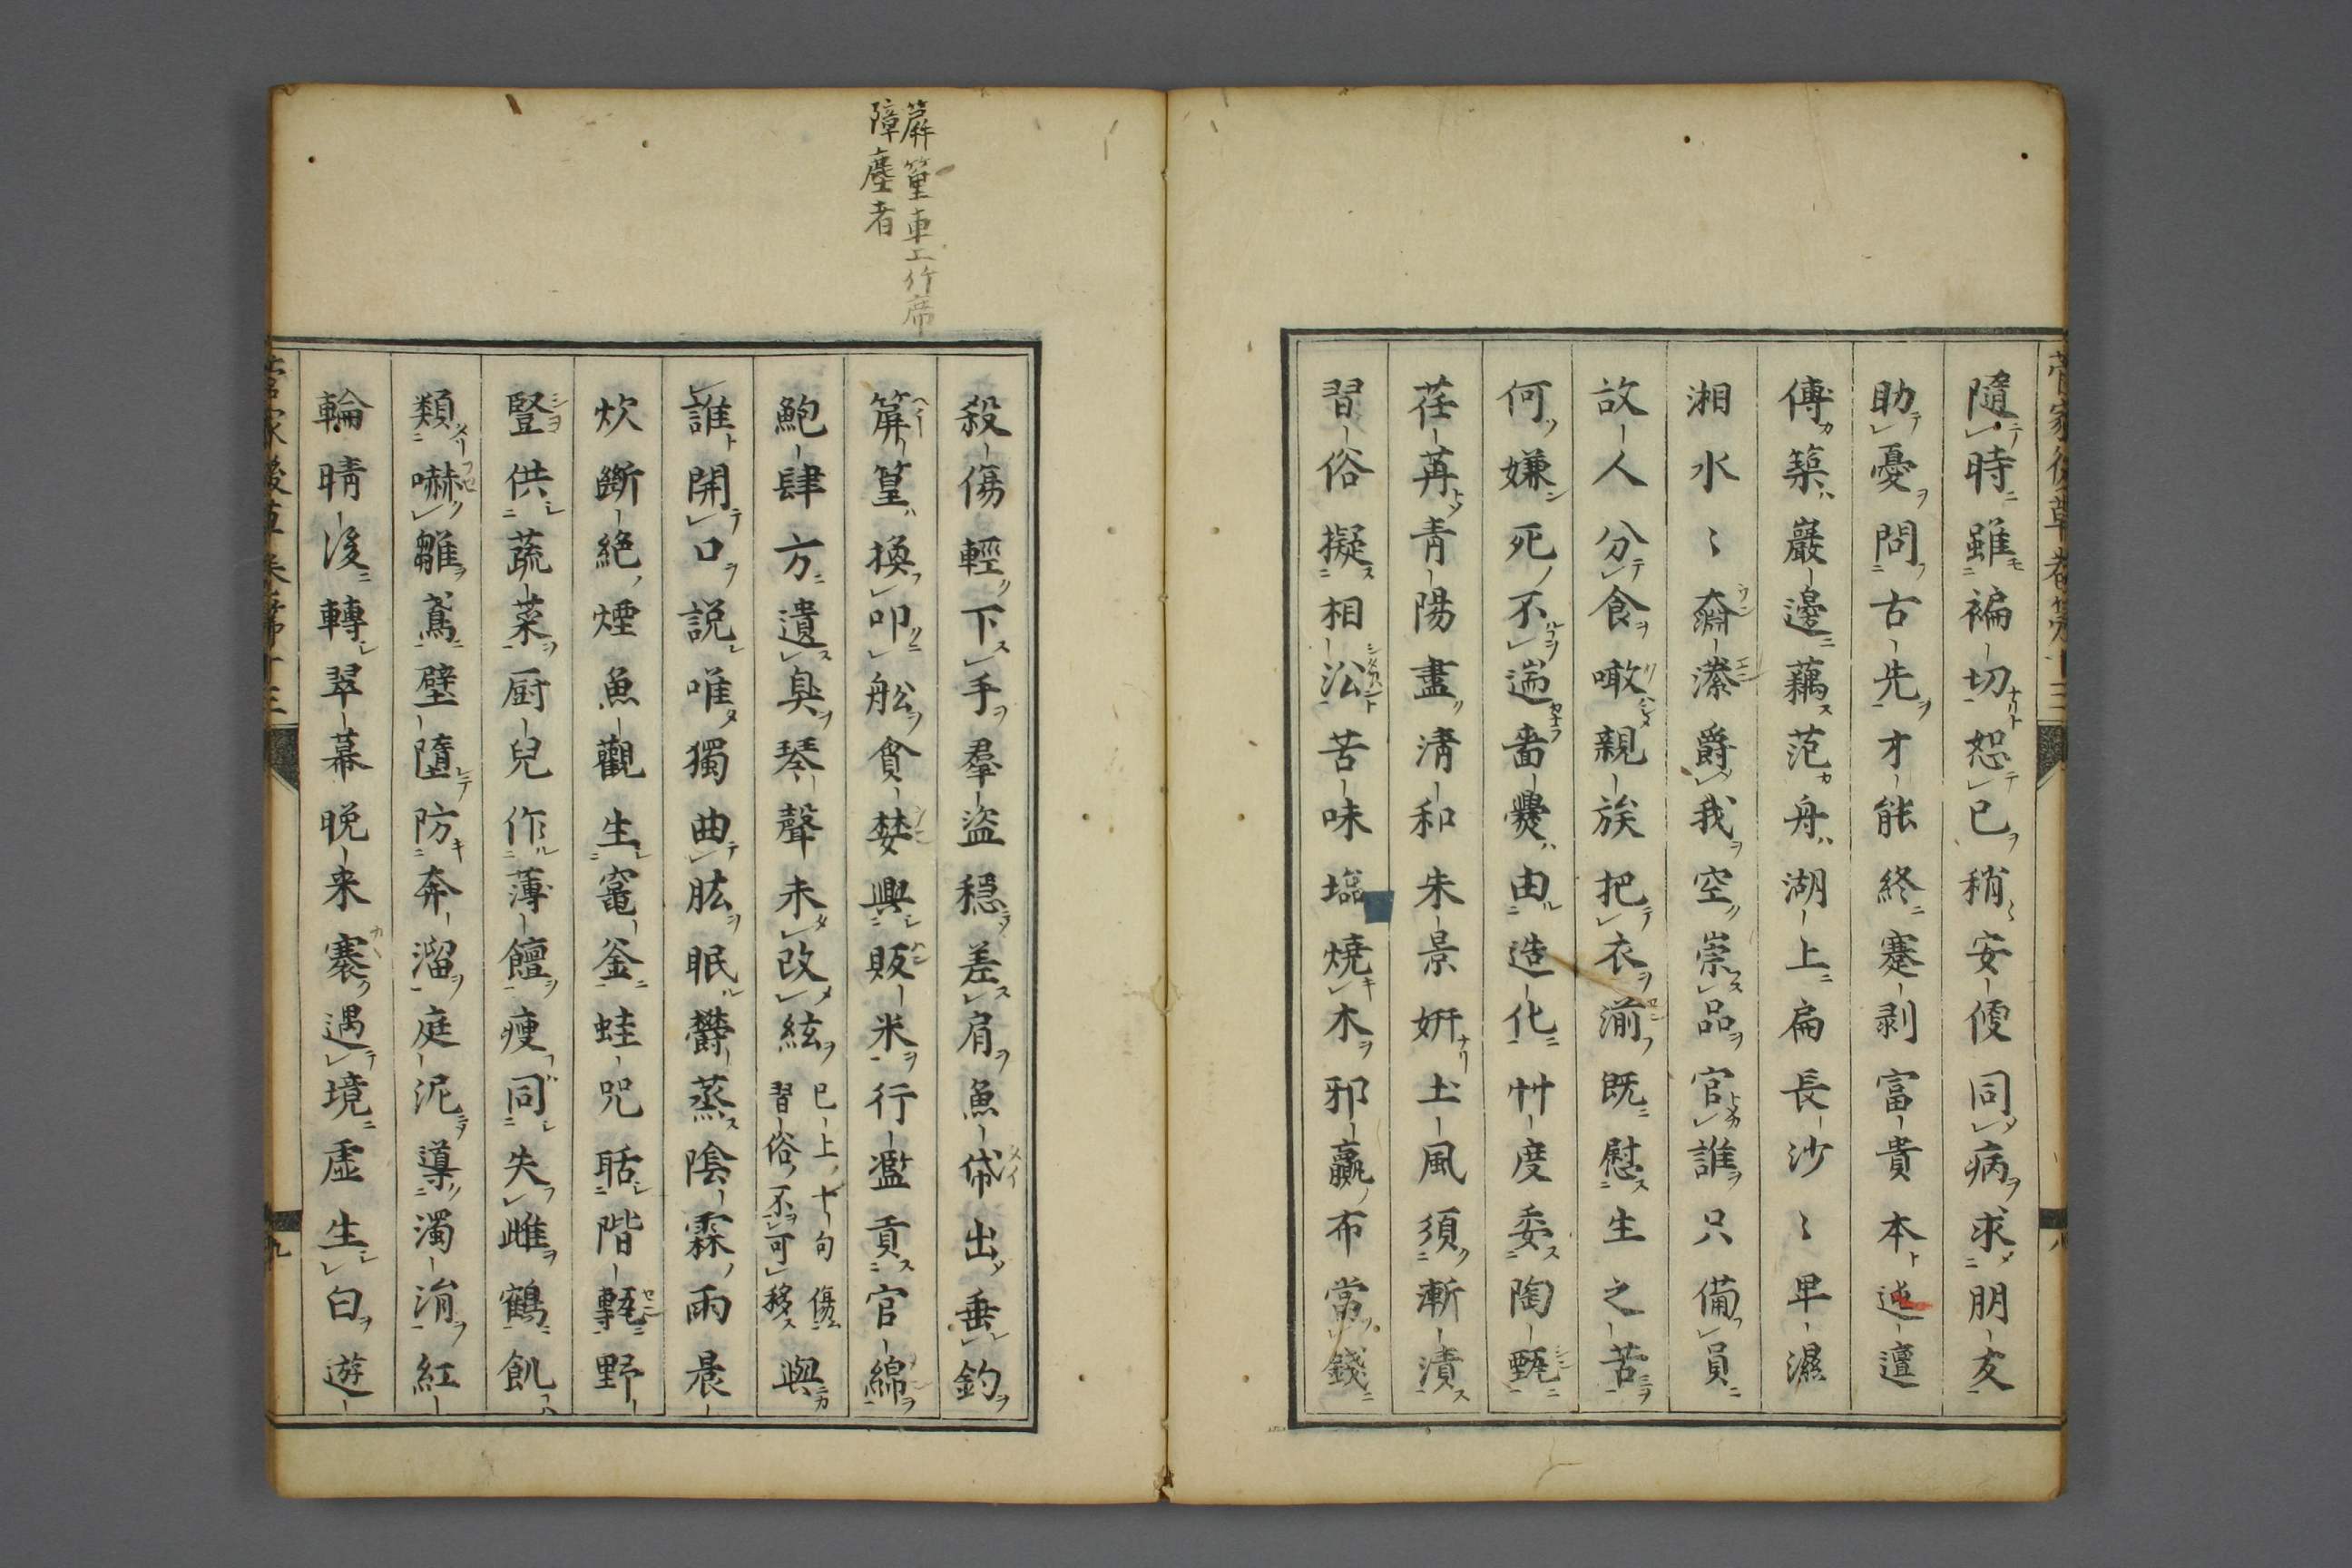 菅家後草卷第十三
隨時雖褊切恕已稍〻安優同病求朋友
助憂問古先才能終蹇剥富貴本迍邅
傳築巖邊藕范舟湖上扁長沙〻卑濕
湘水〻奫潫爵我空崇品官誰只備員
故人分食噉親族把衣湔既慰生之苦
何嫌死不遄䔥㸑由造化艸度委陶甄
荏苒青陽盡清和朱景妍土風須漸漬
習俗擬相訟苦味塩燒木邪贏布當錢
八
簈篁車上竹席
障塵者
殺傷輕下手羣盜穩差肩魚袋出垂釣
簈篁換叩舩貪婪興販米行濫貢官綿
鮑肆方遺臭琴聲未改絃
已上十句傷
習俗不可移
與
誰開口説唯獨曲肱眠欝蒸陰霖雨晨
炊斷絶煙魚觀生竈釜蛙咒聒階甎野
豎供蔬菜厨兒作薄饘瘦同失雌鶴飢
類嚇雛鳶壁墮防奔溜庭泥導濁涓紅
輪晴後轉翠幕晚来褰遇境虛生白遊
菅家後草卷第十三
九